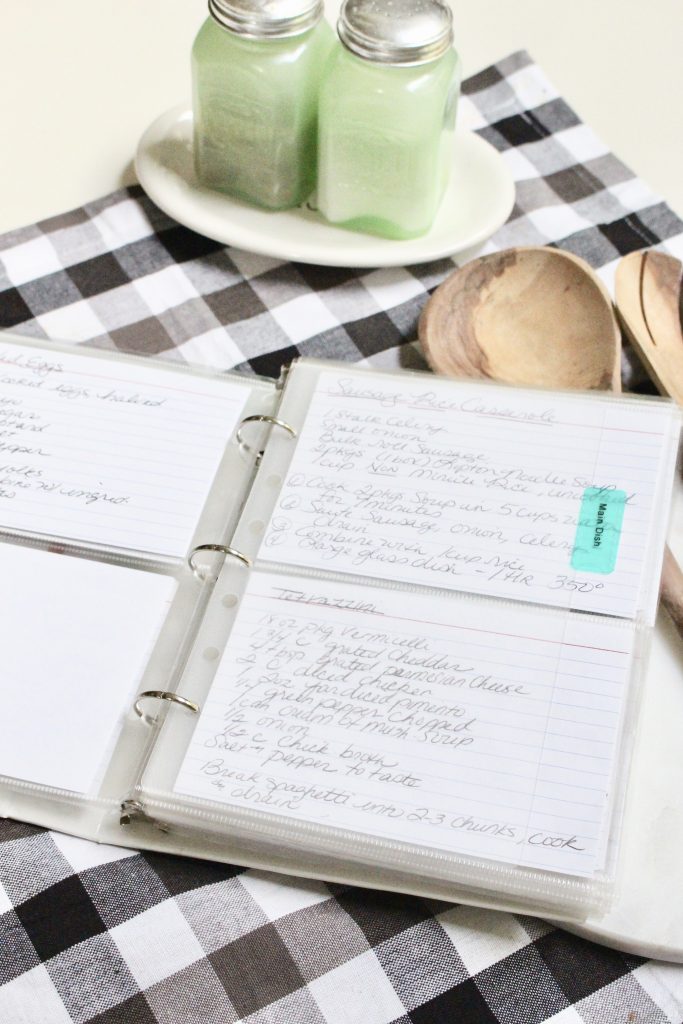 Eggs
eggs, halved
Sausage Rice Casserole
1 stalk celery
Small onion
Bulk roll Sausage
2 pkgs (1 box) Lipton Noodle Soup
1 cup Non Minute Rice, uncooked
① Cook 2 pkg Soup in 5 cups water
for 7 minutes
② Saute Sausage, onion, celery
drain
③ Combine with 1 cup rice
④ glass dish - 1 HR 350°
Main Dish
Tetrazzini
8 oz pkg vermicelli
1 3/4 C grated cheddar
4 Tbsp grated parmesian cheese
2 C diced chicken
2oz jar diced pimento
1/4 green pepper chopped
1 can cream of mush soup
1/2 onion
1/2 c chick broth
Salt + pepper to taste
Break spaghetti into 2-3 chunks, cook
+ drain